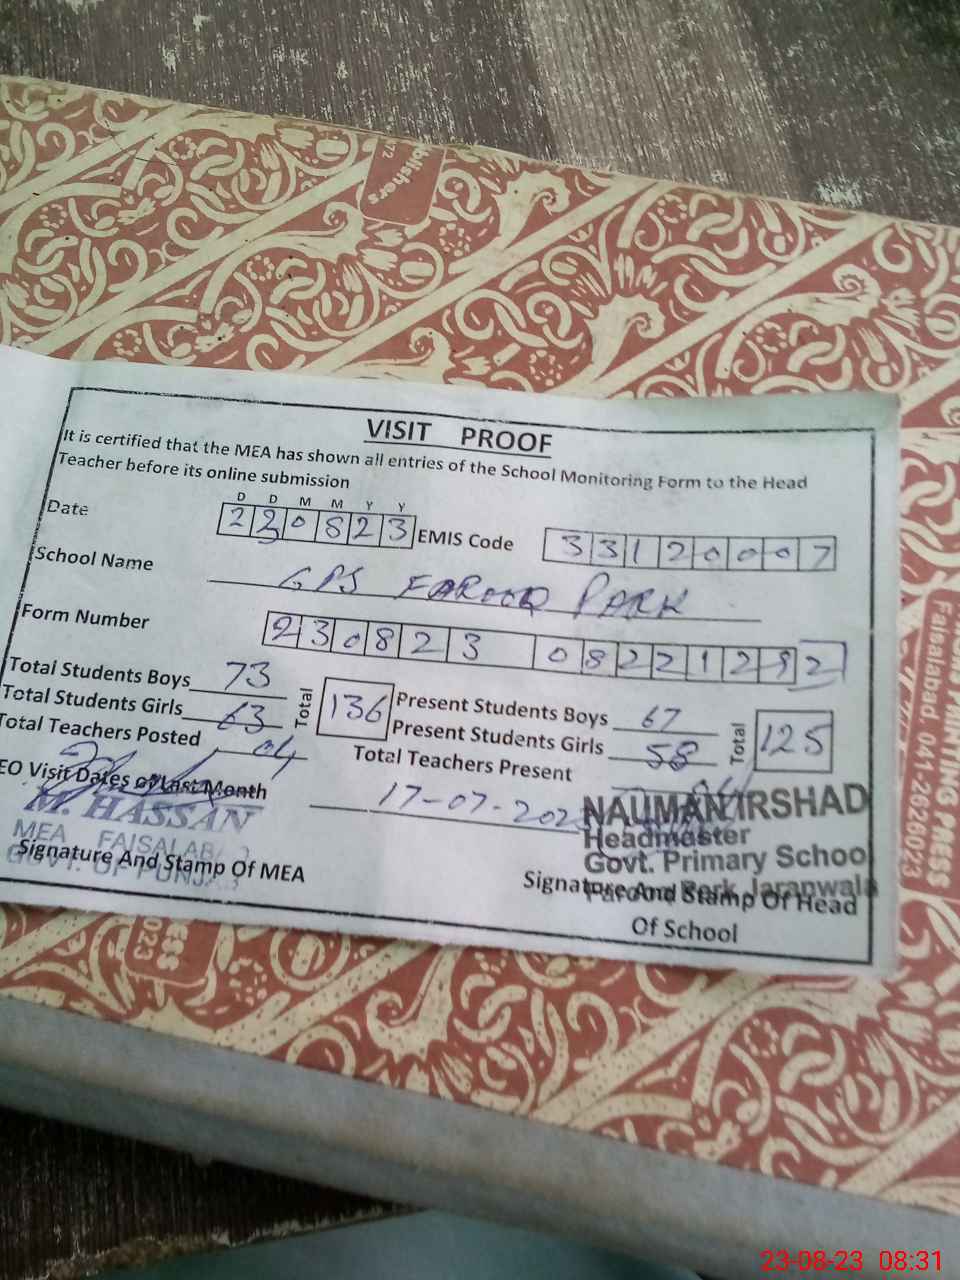 blishers
VISIT PROOF
It is certified that the MEA has shown all entries of the School Monitoring Form to the Head
Teacher before its online submission
D D M M Y Y
Date 220823 EMIS Code 33120007
School Name GPS FAROOQ PARK
Form Number 230823 082212
Total Students Boys 73
Total Students Girls 63
Total 136
Present Students Boys 67
Present Students Girls 58
Total 125
Total Teachers Posted 04
Total Teachers Present
EO Visit Dates of Last Month 17-07-202
M. HASSAN
MEA FAISALAB
GOVT. OF PUNJAB
Signature And Stamp Of MEA
NAUMAN IRSHAD
Headmaster
Govt. Primary School
Farooq Park Jaranwala
Signature And Stamp Of Head
Of School
PRINTING PRESS
Faisalabad. 041-2626023
ESS
023
23-08-23 08:31